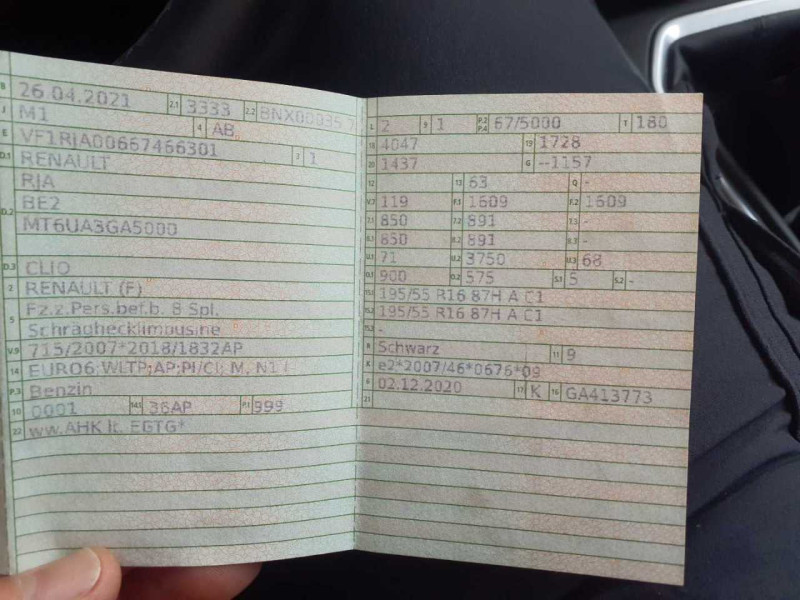 B 26.04.2021 2.1 3333 2.2 BNX00035
J M1 4 AB
E VF1RJA00667466301 3 1
D.1 RENAULT
RJA
D.2 BE2
MT6UA3GA5000
D.3 CLIO
2 RENAULT (F)
5 Fz.z.Pers.bef.b. 8 Spl.
Schräghecklimousine
V.9 715/2007*2018/1832AP
14 EURO6;WLTP;AP;PI/CI; M, N1 I
P.3 Benzin
10 0001 14.1 36AP P.1 999
22 ww.AHK lt. EGTG*
L 2 9 1 P.2 P.4 67/5000 T 180
18 4047 19 1728
20 1437 G --1157
12 13 63 Q -
V.7 119 F.1 1609 F.2 1609
7.1 850 7.2 891 7.3 -
8.1 850 8.2 891 8.3 -
U.1 71 U.2 3750 U.3 68
O.1 900 O.2 575 S.1 5 S.2 -
15.1 195/55 R16 87H A C1
15.2 195/55 R16 87H A C1
15.3 -
R Schwarz 11 9
K e2*2007/46*0676*09
6 02.12.2020 17 K 16 GA413773
21